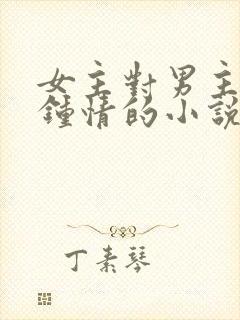 女主對男主
鍾情的小說
丁素琴